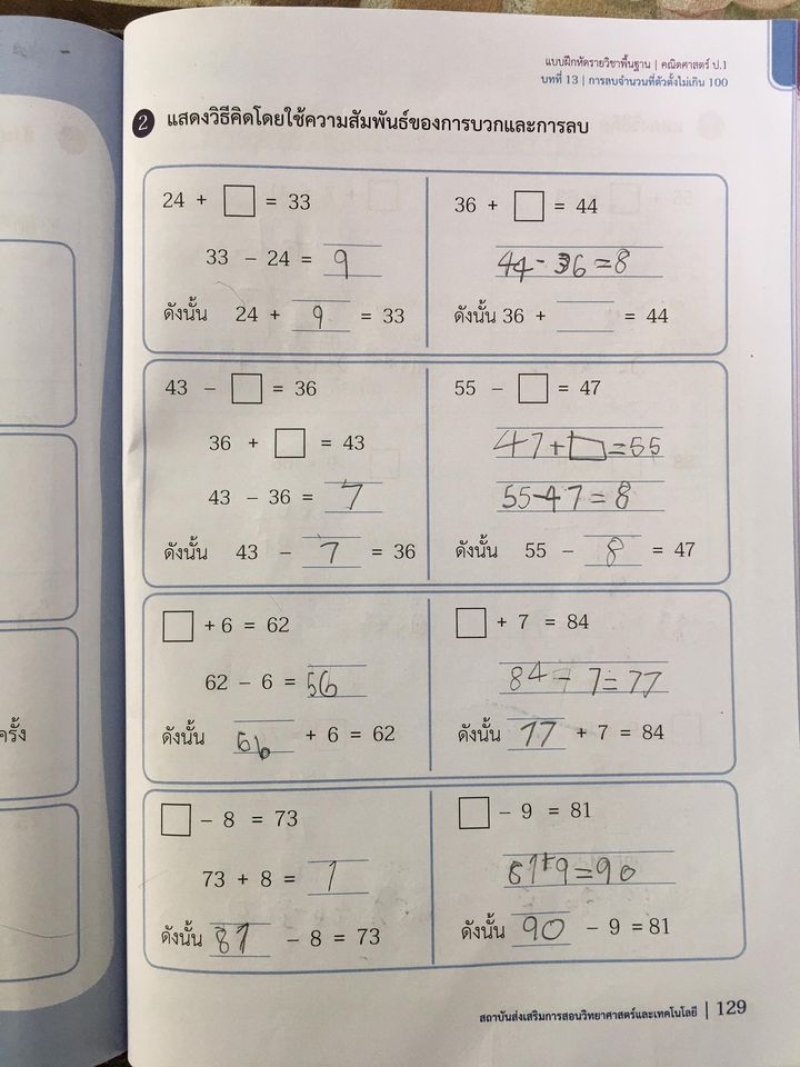 แบบฝึกหัดรายวิชาพื้นฐาน | คณิตศาสตร์ ป.1
บทที่ 13 | การลบจำนวนที่ตัวตั้งไม่เกิน 100
2 แสดงวิธีคิดโดยใช้ความสัมพันธ์ของการบวกและการลบ
24 + □ = 33
33 - 24 = 9
ดังนั้น 24 + 9 = 33
36 + □ = 44
44 - 36 = 8
ดังนั้น 36 + ___ = 44
43 - □ = 36
36 + □ = 43
43 - 36 = 7
ดังนั้น 43 - 7 = 36
55 - □ = 47
47 + □ = 55
55 - 47 = 8
ดังนั้น 55 - 8 = 47
□ + 6 = 62
62 - 6 = 56
ดังนั้น 56 + 6 = 62
□ + 7 = 84
84 - 7 = 77
ดังนั้น 77 + 7 = 84
□ - 8 = 73
73 + 8 = 1
ดังนั้น 81 - 8 = 73
□ - 9 = 81
81 + 9 = 90
ดังนั้น 90 - 9 = 81
ครั้ง
สถาบันส่งเสริมการสอนวิทยาศาสตร์และเทคโนโลยี | 129